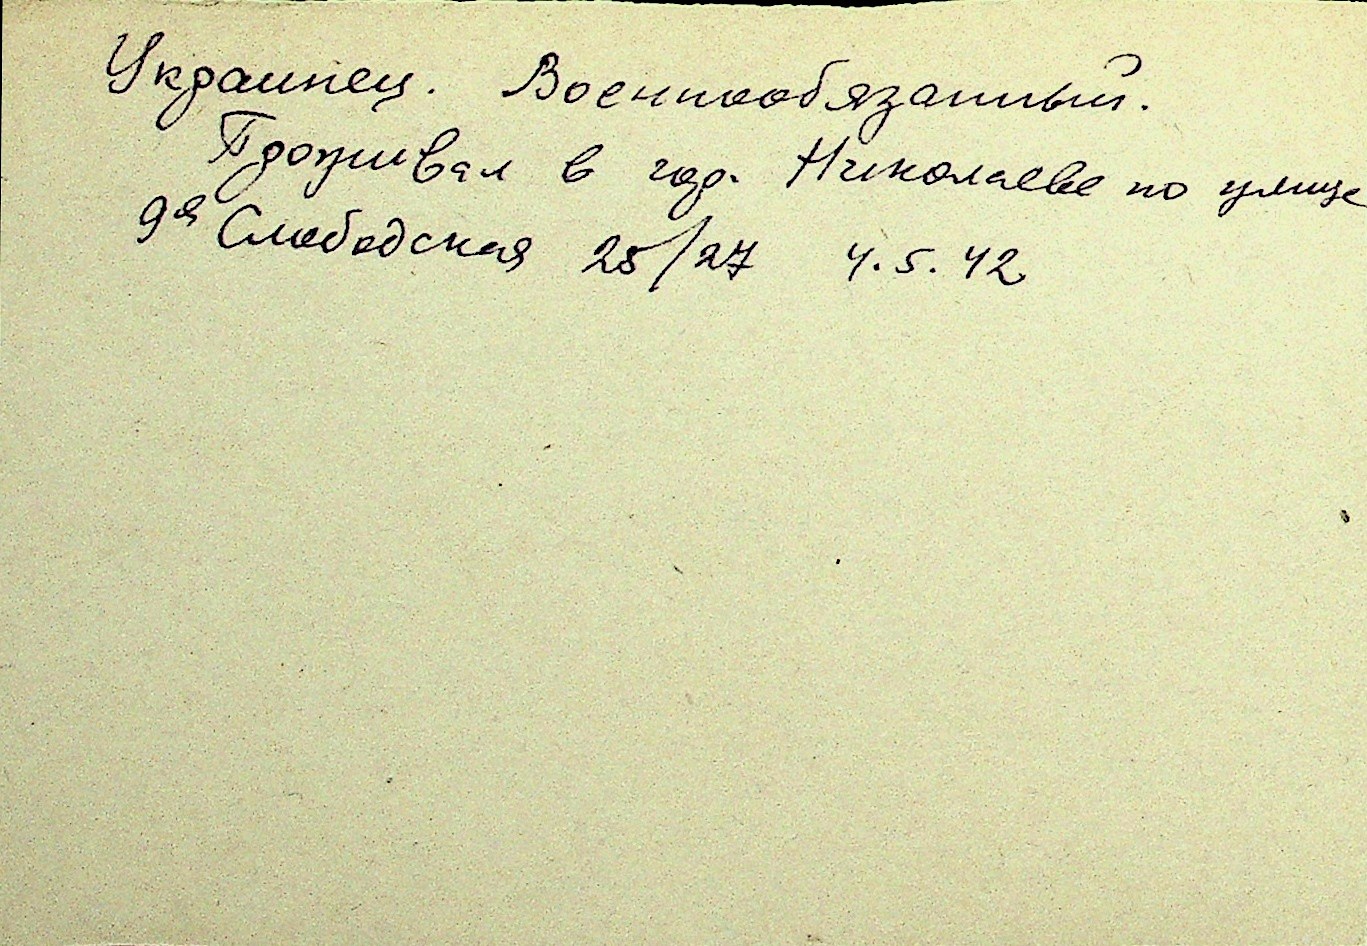 Украинец. Военнообязанный.
Проживал в гор. Николаеве по улице
9я Слободская 25/27 4.5.42